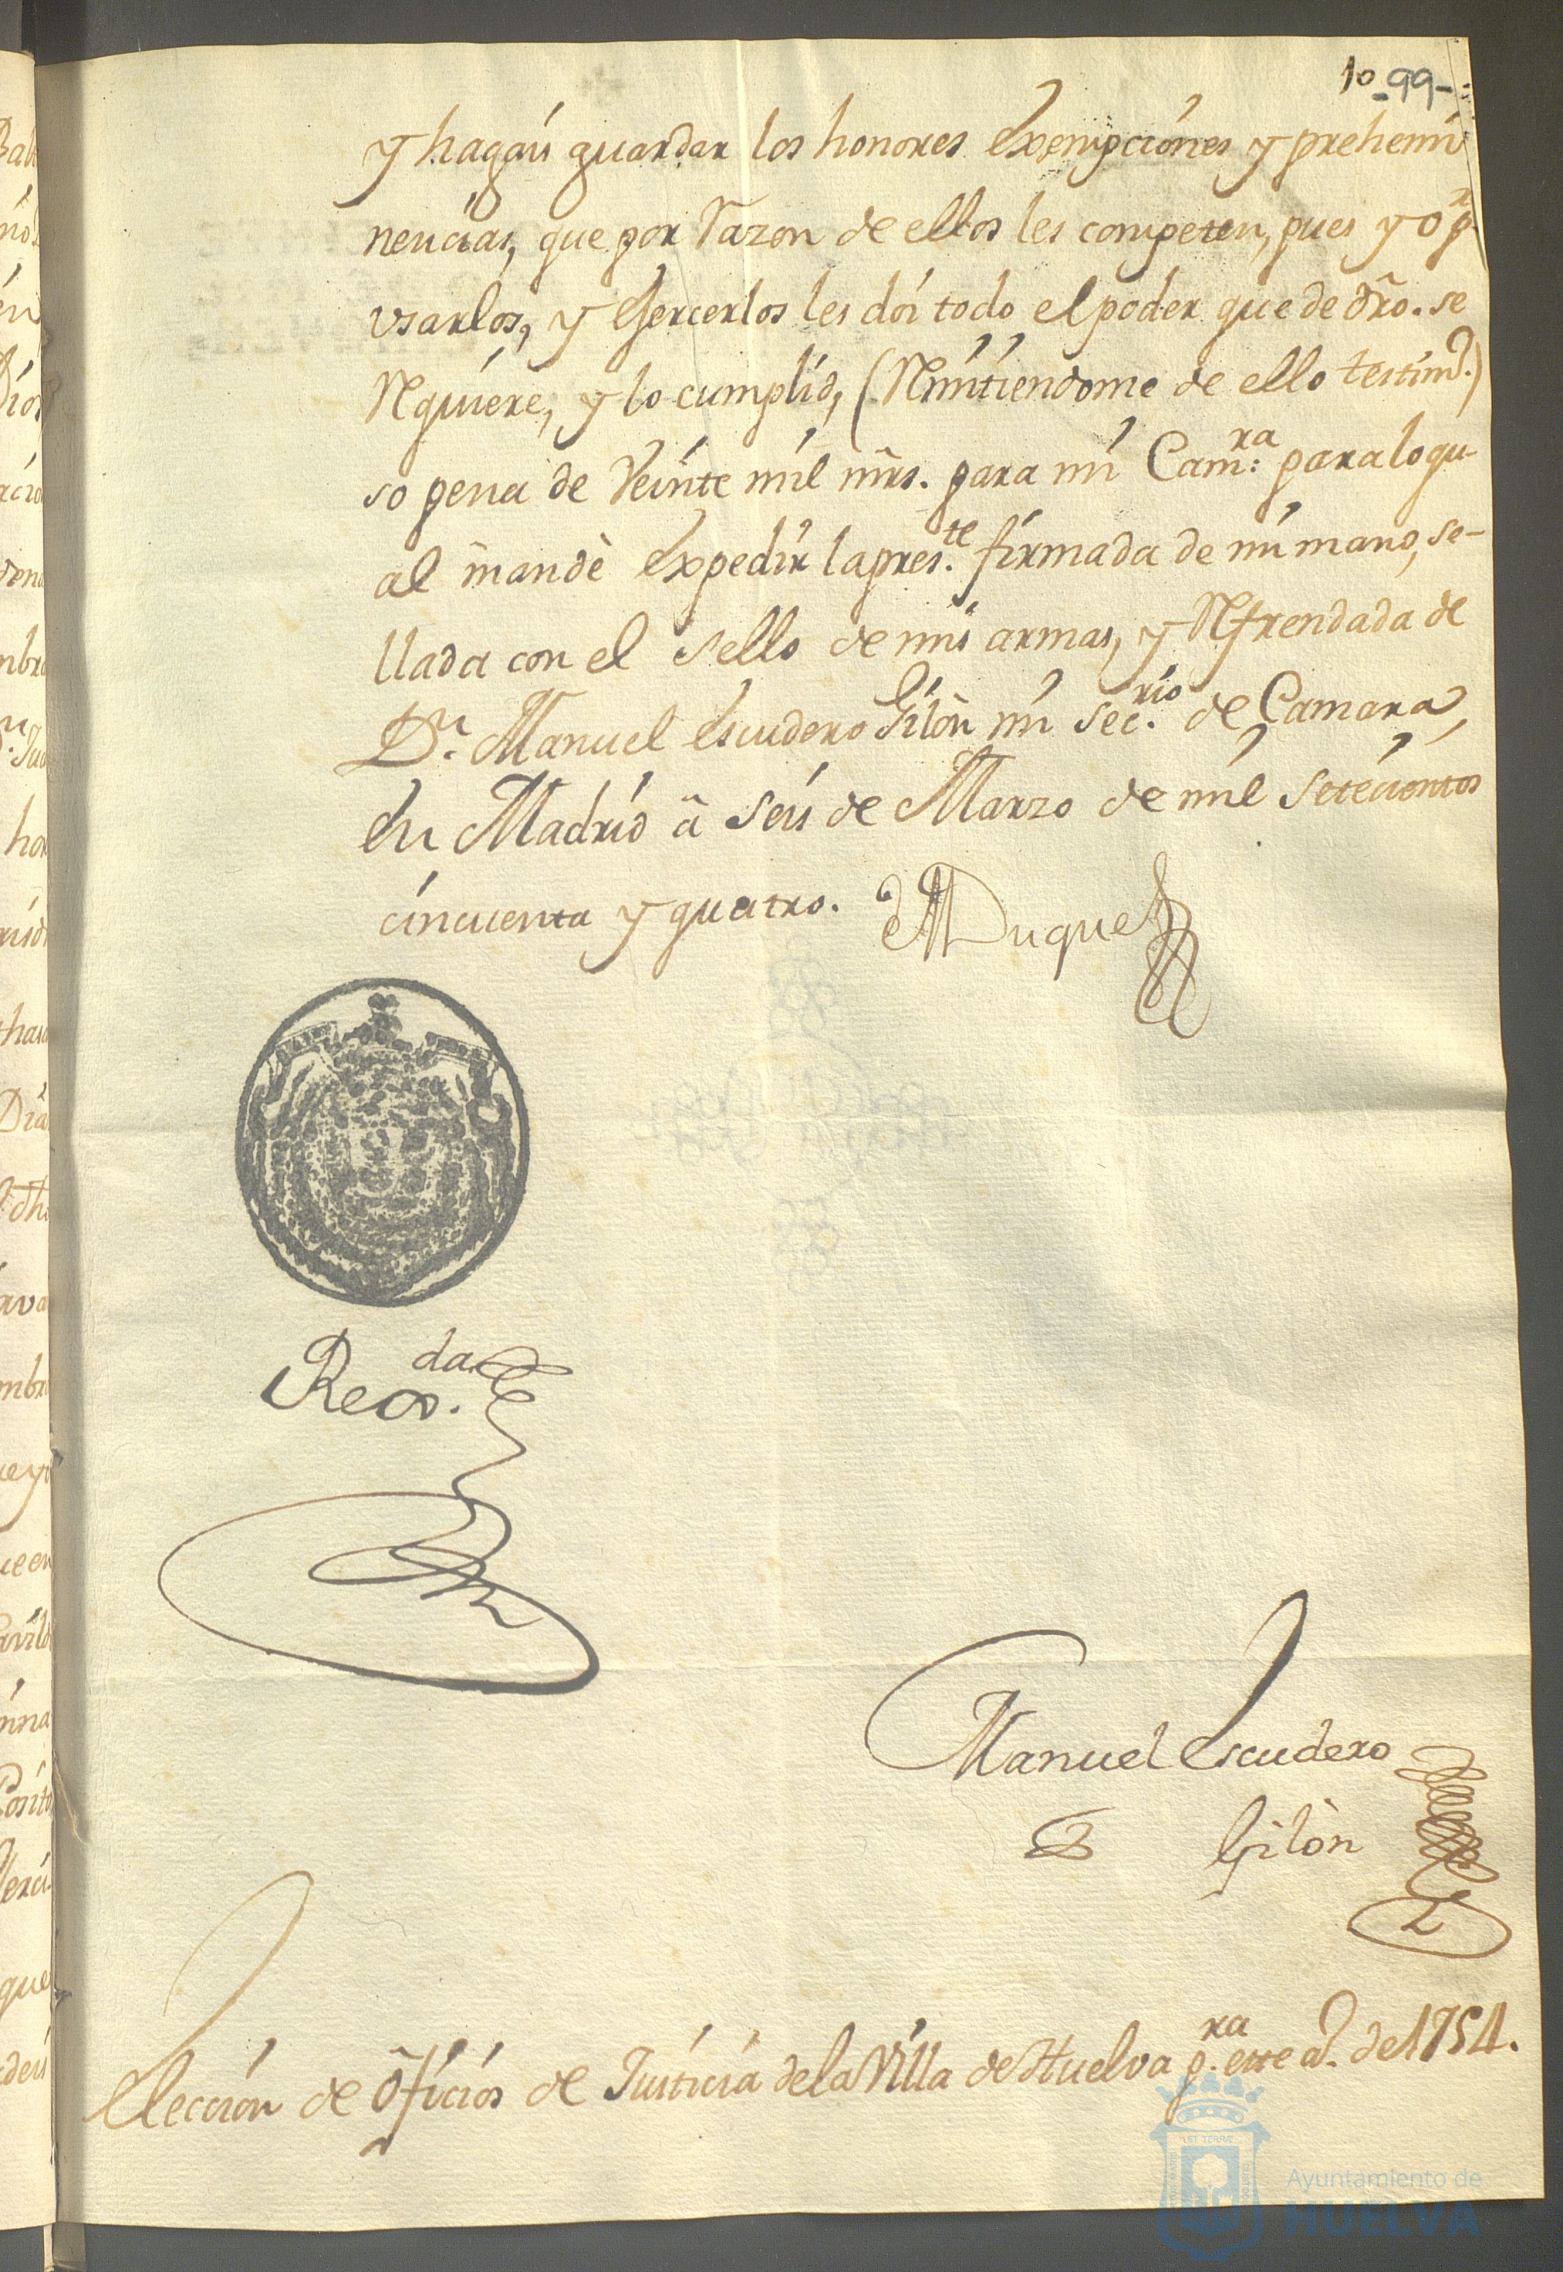 10 -99-
y hagan guardar los honores exempciones y prehemi
nencias, que por razon de ellos les competen, pues yo pr
usarlos, y exercerlos les doi todo el poder que de dro. se
requiere, y lo cumplid, (remitiendome de ello testimo.)
so pena de Veinte mil mrs. para mi Camra. para lo qu-
al mandè expedir la preste. firmada de mi mano, se-
llada con el sello de mis armas, y refrendada de
Dn. Manuel Escudero Gilòn mi secrio. de Camara,
En Madrid â seis de Marzo de mil setecientos
cincuenta y quatro. el Duque
Rexda.
Manuel Escudero
Gilòn
Eleccion de oficios de Justicia de la Villa de Huelva pra. este ao. de 1754.
Ayuntamiento de
HUELVA